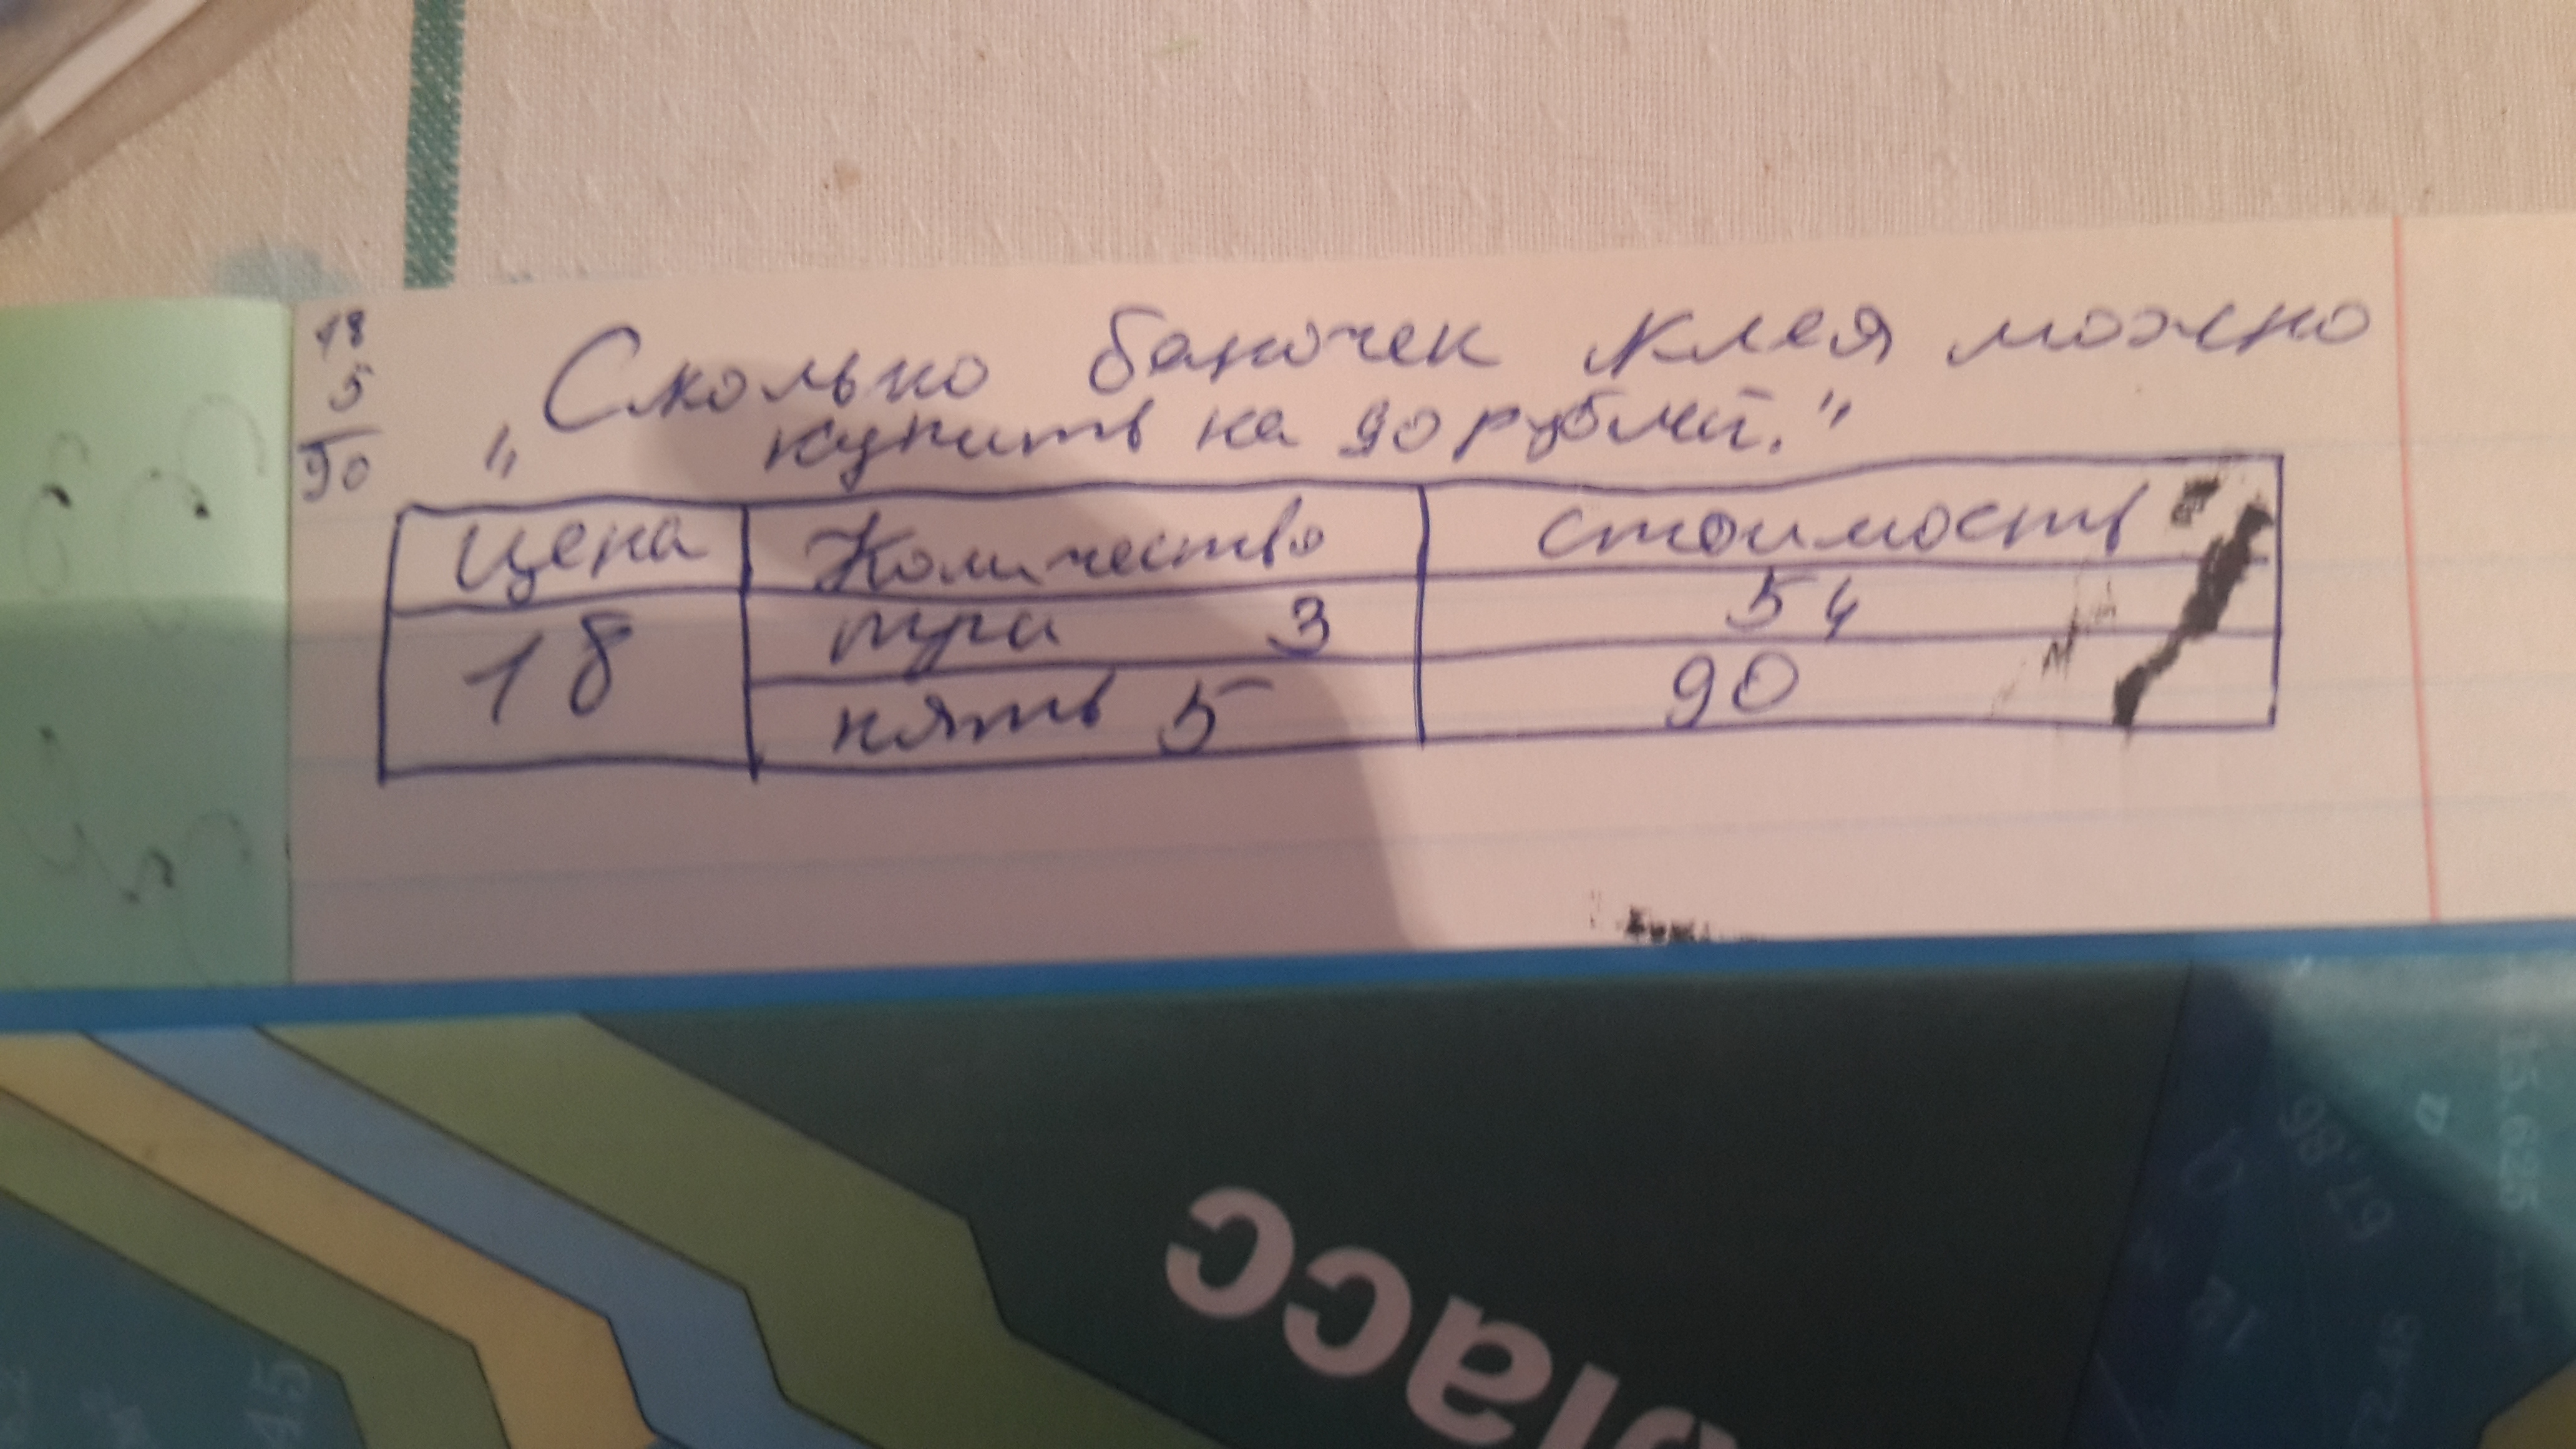 18
5
90
„Сколько баночек клея можно
купить на 90 рублей."
Цена Количество стоимость
18 три 3 54
пять 5 90
ласс
15.625
67,86
45